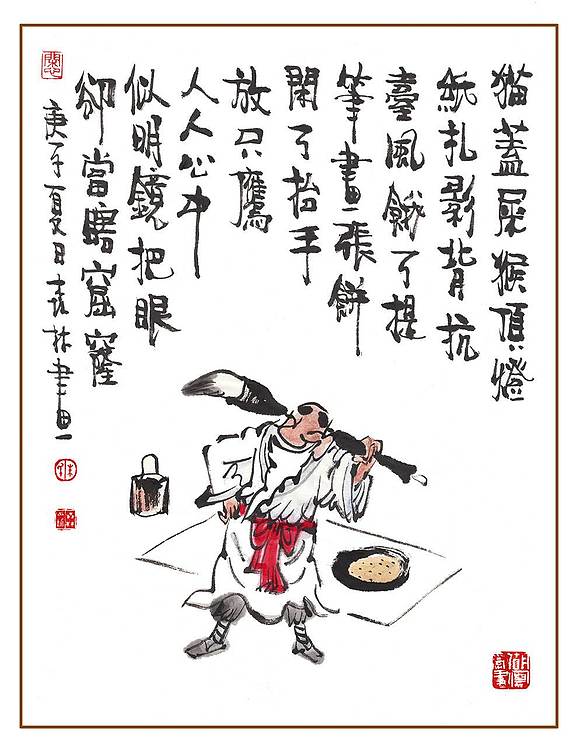 猫蓋屎猴頂燈
紙扎影背抗
臺風餓了提
筆畫一張餅
閑了抬手
放只鷹
人人心中
似明鏡把眼
卻當瞎窟窿
庚子夏日林畫